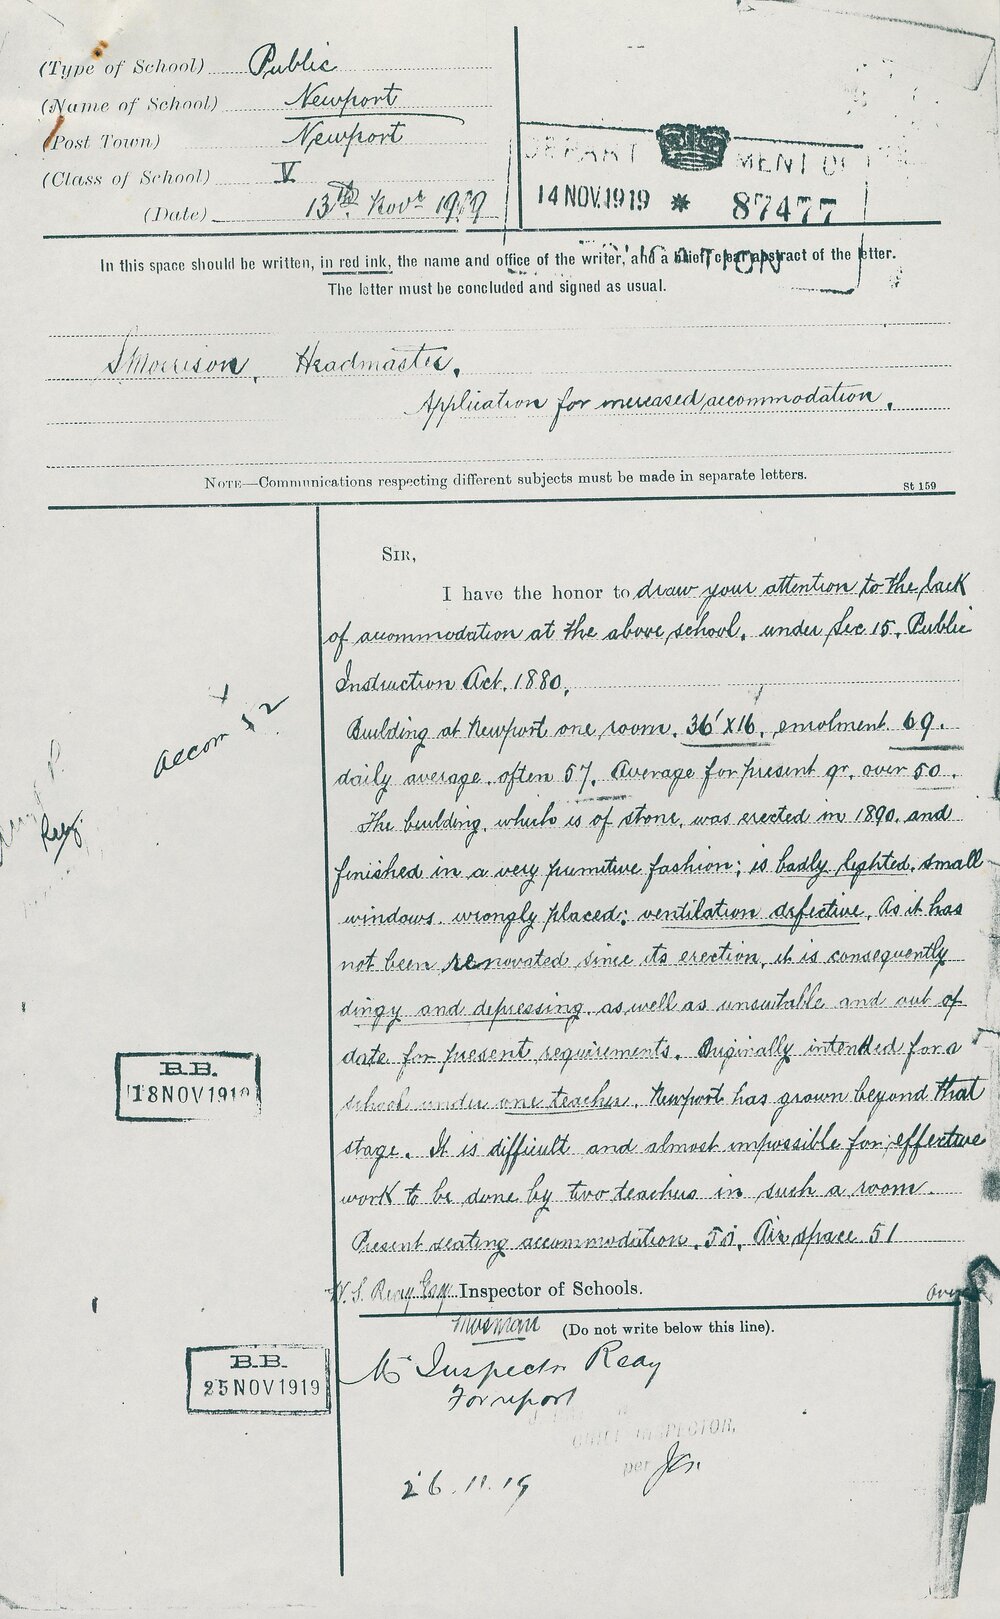 (Type of School) Public
(Name of School) Newport
(Post Town) Newport
(Class of School) V
(Date) 13th Novr 1919
DEPARTMENT OF
14 NOV. 1919 * 87477
EDUCATION
In this space should be written, in red ink, the name and office of the writer, and a brief, clear abstract of the letter.
The letter must be concluded and signed as usual.
S Morrison, Headmaster.
Application for increased accommodation.
NOTE—Communications respecting different subjects must be made in separate letters.
St 159
SIR,
I have the honor to draw your attention to the lack
of accommodation at the above school, under Sec 15, Public
Instruction Act, 1880.
Building at Newport one room, 36' X 16, enrolment 69.
daily average, often 57. Average for present qr. over 50.
The building, which is of stone, was erected in 1890, and
finished in a very primitive fashion; is badly lighted, small
windows, wrongly placed; ventilation defective. As it has
not been renovated since its erection, it is consequently
dingy and depressing, as well as unsuitable and out of
date for present requirements. Originally intended for a
school under one teacher, Newport has grown beyond that
stage. It is difficult and almost impossible for effective
work to be done by two teachers in such a room.
Present seating accommodation, 50, Air space 51
accom 52
Reay
B.B.
18 NOV 1919
W. S. Reay Esq. Inspector of Schools.
over
Mosman (Do not write below this line).
B.B.
25 NOV 1919
Mr Inspector Reay
For report
CHIEF INSPECTOR,
per
26.11.19